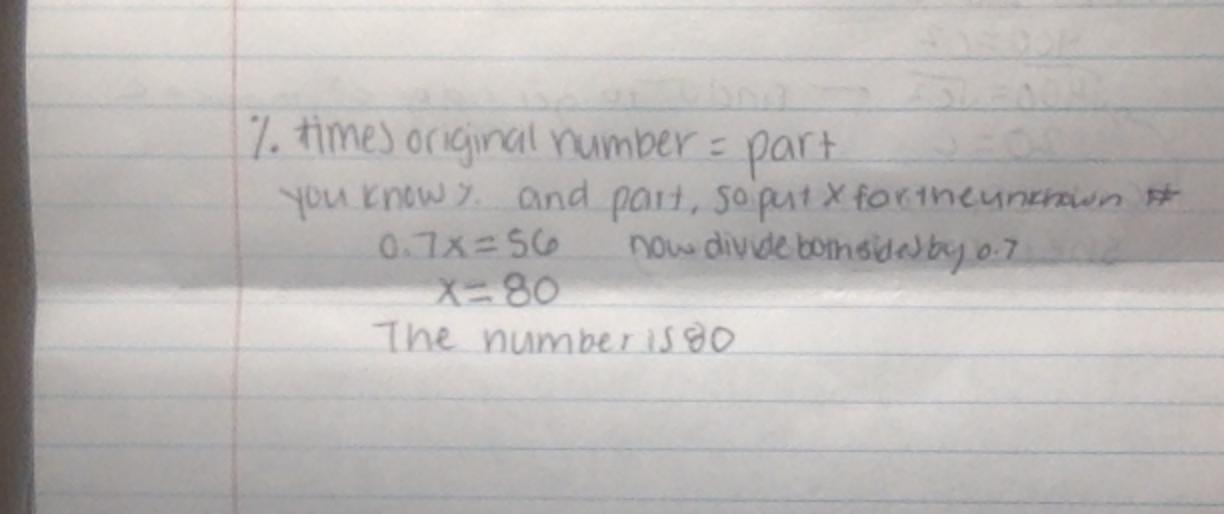 % times original number = part
you know % and part, so put x for the unknown #
0.7x = 56 now divide both sides by 0.7
x = 80
The number is 80